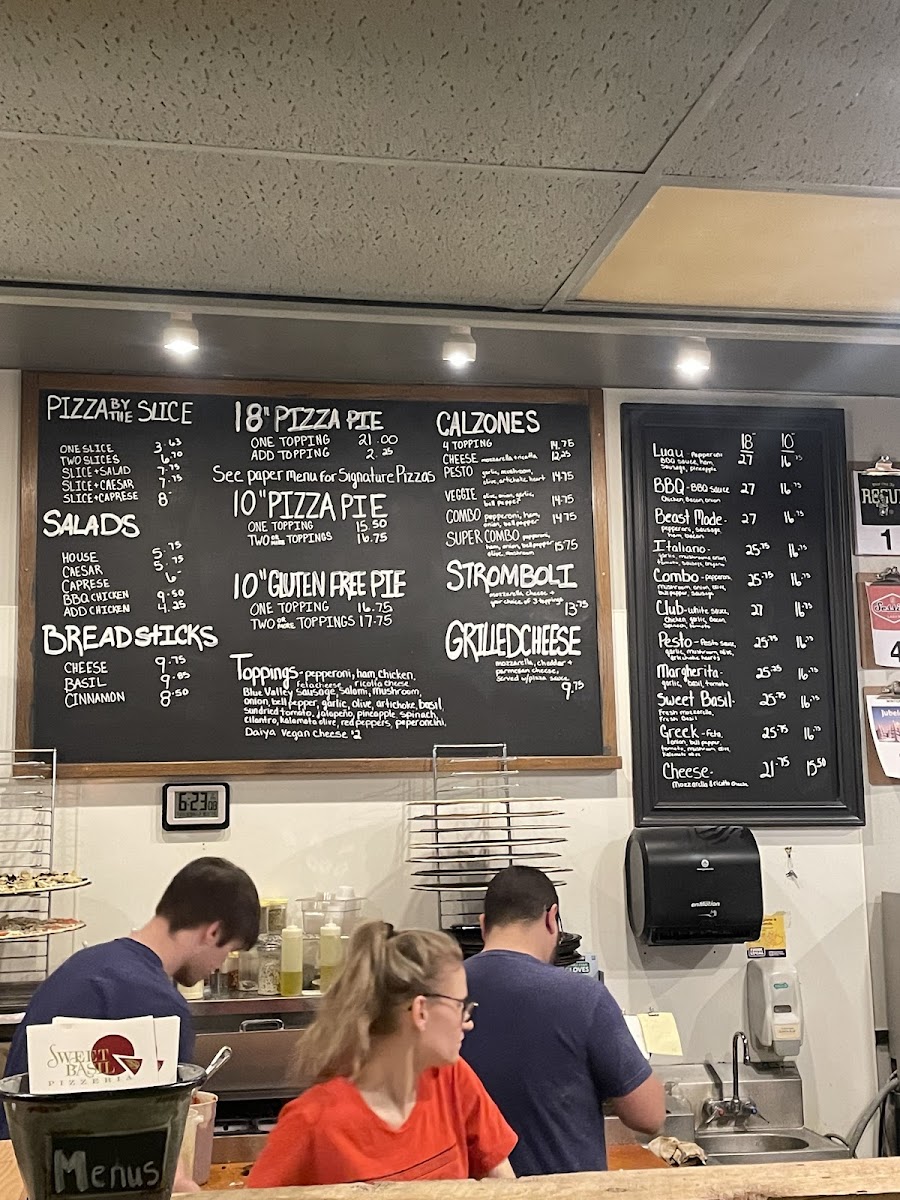 PIZZA BY THE SLICE
ONE SLICE 3.63
TWO SLICES 6.70
SLICE + SALAD 7.75
SLICE + CAESAR 7.75
SLICE + CAPRESE 8-
SALADS
HOUSE 5.75
CAESAR 5.75
CAPRESE 6-
BBQ CHICKEN 9.50
ADD CHICKEN 4.25
BREADSTICKS
CHEESE 9.75
BASIL 9.85
CINNAMON 8.50
18" PIZZA PIE
ONE TOPPING 21.00
ADD TOPPING 2.25
See paper menu for Signature Pizzas
10" PIZZA PIE
ONE TOPPING 15.50
TWO OR MORE TOPPINGS 16.75
10" GLUTEN FREE PIE
ONE TOPPING 16.75
TWO OR MORE TOPPINGS 17.75
Toppings - pepperoni, ham, chicken,
feta cheese, ricotta cheese
Blue Valley Sausage, Salami, mushroom,
onion, bell pepper, garlic, olive, artichoke, basil,
sundried tomato, jalapeño, pineapple, spinach,
cilantro, kalamata olive, red peppers, peperonchini,
Daiya Vegan Cheese $2
CALZONES
4 TOPPING 14.75
CHEESE mozzarella + ricotta 12.25
PESTO garlic, mushroom,
olive, artichoke heart 14.75
VEGGIE olive, onion, garlic,
bell pepper 14.75
COMBO pepperoni, ham,
onion, bell pepper 14.75
SUPER COMBO pepperoni,
ham, onion, bell pepper
olive, mushroom 15.75
STROMBOLI
mozzarella cheese +
your choice of 3 toppings
13.75
GRILLED CHEESE
mozzarella, cheddar +
parmesan cheese,
served w/pizza sauce
9.75
18" 10"
Luau - Pepperoni 27 16.75
BBQ sauce, ham,
Sausage, pineapple
BBQ - BBQ sauce 27 16.75
Chicken, Bacon, onion
Beast Mode - 27 16.75
pepperoni, sausage,
ham, bacon
Italiano - 25.75 16.75
garlic, mushrooms, onion,
tomato, sausage, oregano
Combo - pepperoni, 25.75 16.75
mushroom, onion, olive,
bell pepper, sausage
Club - white sauce, 27 16.75
Chicken, garlic, Bacon
Spinach, tomato
Pesto - Pesto sauce, 25.75 16.75
garlic, mushroom, olive,
artichoke hearts
Margherita - 25.25 16.75
garlic, basil, tomato
Sweet Basil - 25.75 16.75
Fresh mozzarella,
Fresh Basil
Greek - Feta, 25.75 16.75
onion, bell pepper,
tomato, mushroom, olive,
Kalamata olive
Cheese - 21.75 15.50
Mozzarella & ricotta cheese
REGU
1
4
6:23
enMotion
GLOVES
SWEET
BASIL
PIZZERIA
Menus